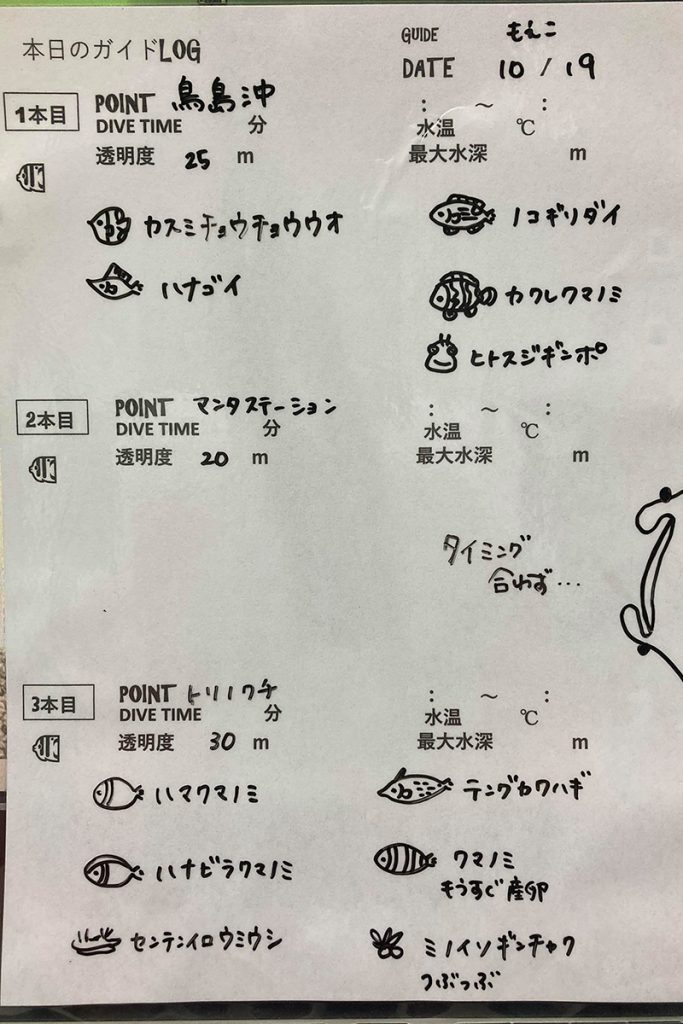 本日のガイドLOG
GUIDE もえこ
DATE 10 / 19
1本目
POINT 鳥島沖
: ～ :
DIVE TIME 分
水温 ℃
透明度 25 m
最大水深 m
カスミチョウチョウウオ
ノコギリダイ
ハナゴイ
カクレクマノミ
ヒトスジギンポ
2本目
POINT マンタステーション
: ～ :
DIVE TIME 分
水温 ℃
透明度 20 m
最大水深 m
タイミング
合わず...
3本目
POINT トリノクチ
: ～ :
DIVE TIME 分
水温 ℃
透明度 30 m
最大水深 m
ハマクマノミ
テングカワハギ
ハナビラクマノミ
クマノミ
もうすぐ産卵
センテンイロウミウシ
ミノイソギンチャク
つぶつぶ